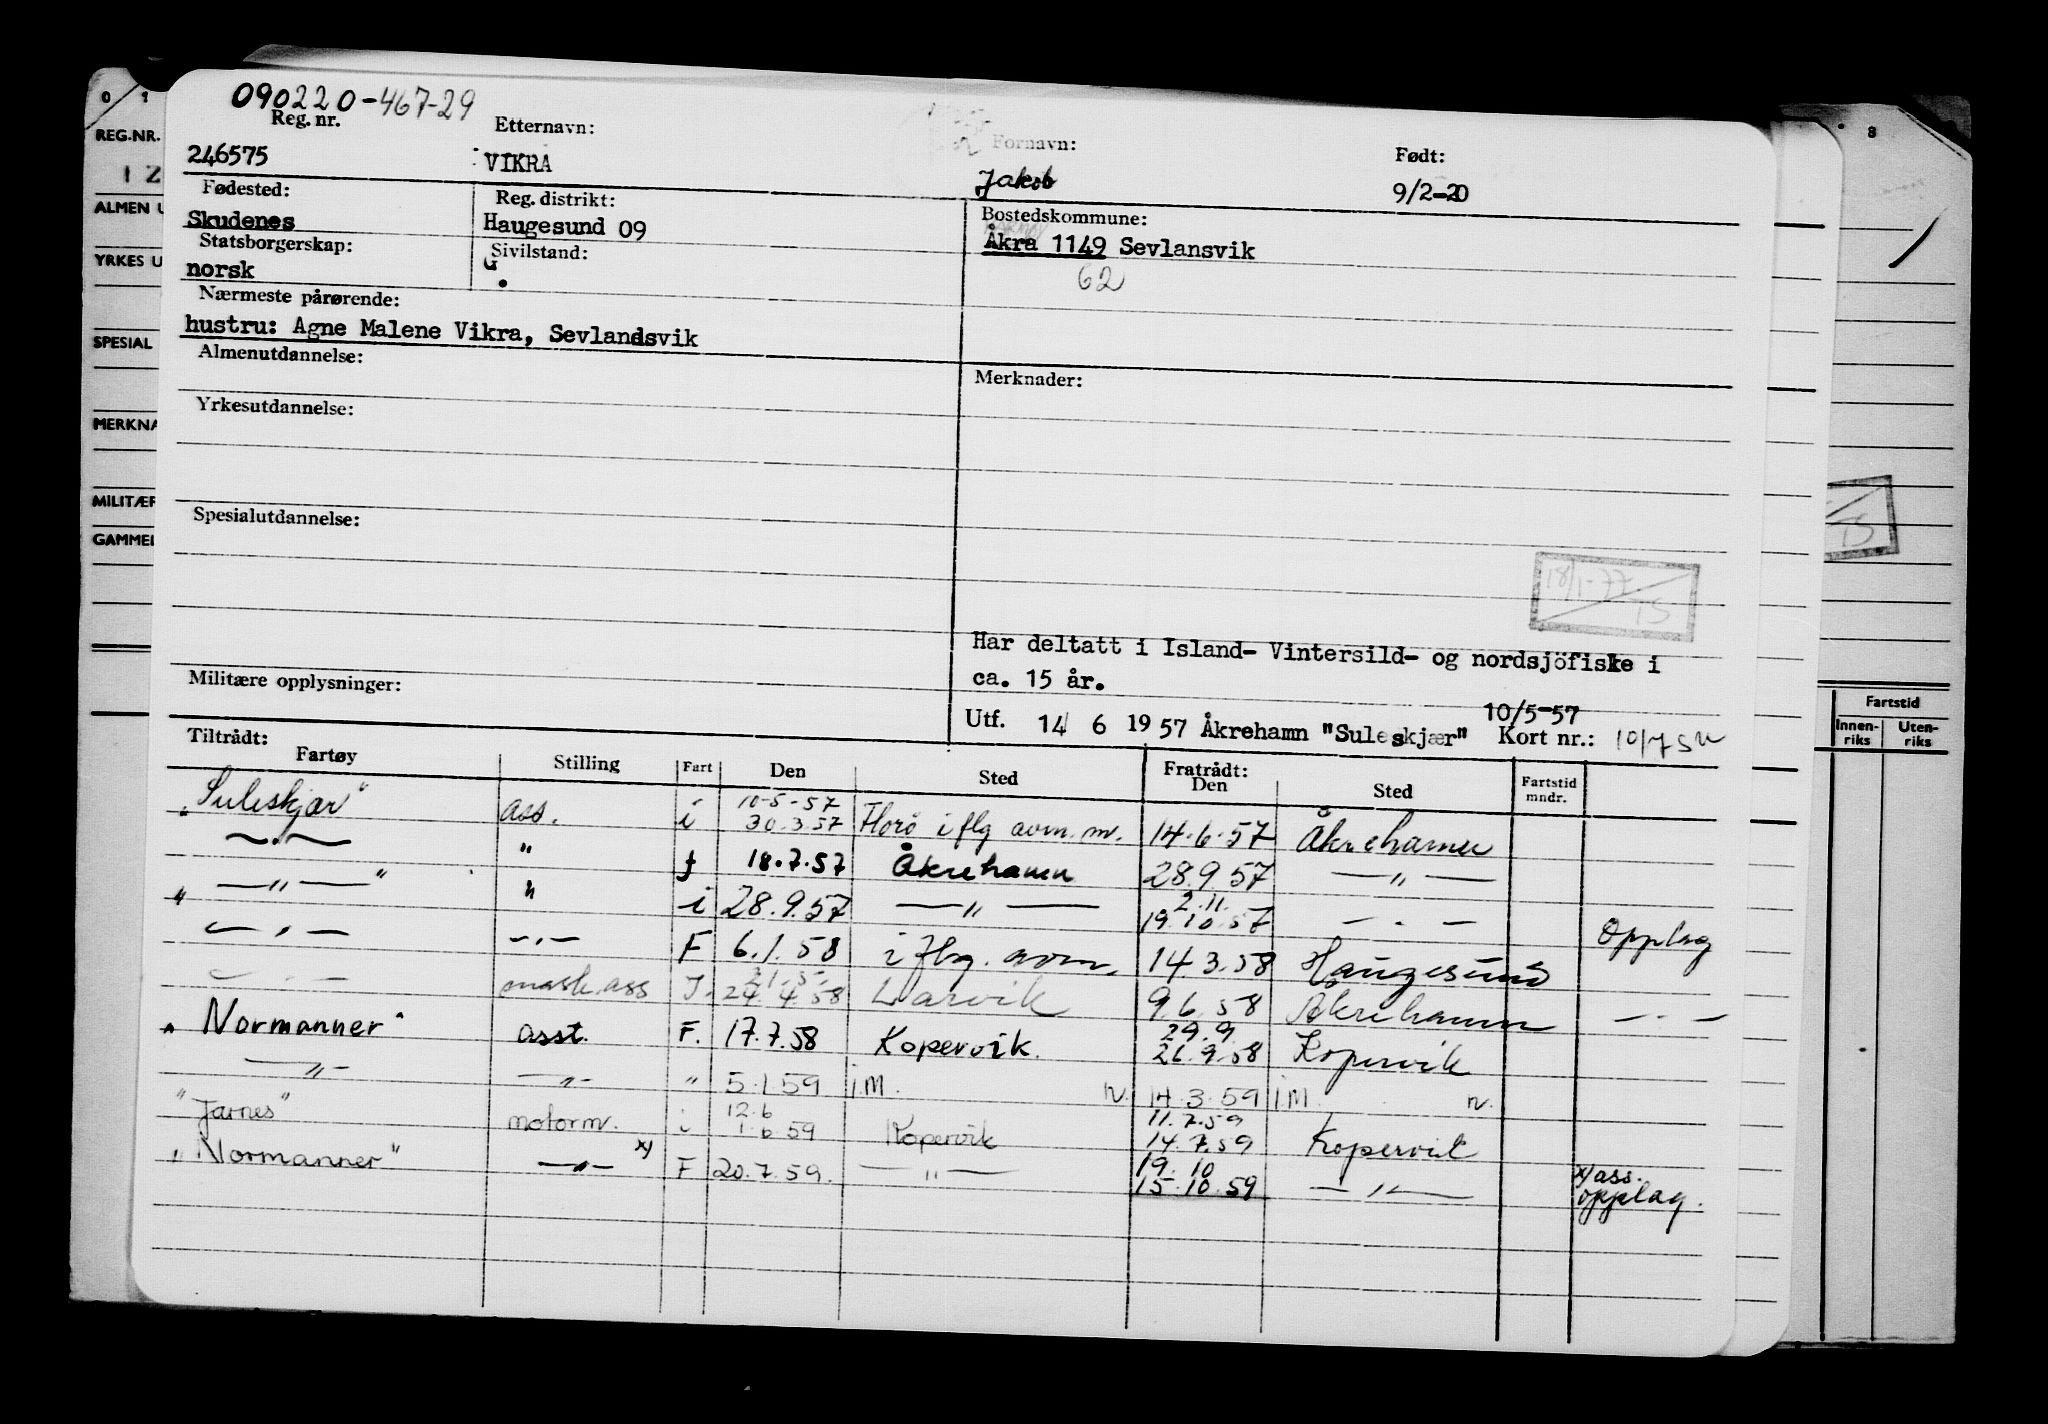 090220-467-29
Reg. nr. Etternavn: Fornavn: Født:
246575 VIKRA Jakob 9/2-20
Fødested: Reg. distrikt: Bostedskommune:
Skudenes Haugesund 09 Åkra 1149 Sevlansvik
Statsborgerskap: Sivilstand: 62
norsk G.
Nærmeste pårørende:
hustru: Agne Malene Vikra, Sevlandsvik
Almenutdannelse: Merknader:
Yrkesutdannelse:
Spesialutdannelse:
18/1-77 TS
Har deltatt i Island- Vintersild- og nordsjöfiske i
ca. 15 år.
Militære opplysninger:
10/5-57
Utf. 14 6 1957 Åkrehamn "Suleskjær" Kort nr.:
Tiltrådt: Fratrådt:
Fartøy Stilling Fart Den Sted Den Sted Fartstid mndr.
10-5-57
"Suleskjær" ass. i 30.3.57 Florö i flg avm. m. 14.6.57 Åkrehamn
— " — " f 18.7.57 Åkrehamn 28.9.57 — " —
2.11.
" — " — " " i 28.9.57 — " — 19.10.57 — " — Opplag
— " — — " — F 6.1.58 i flg. avm. 14.3.58 Haugesund
21.5.
— " — mask.ass J. 24.4.58 Larvik 9.6.58 Åkrehamn — " —
29.9.
"Normanner" asst. F. 17.7.58 Kopervik. 26.9.58 Kopervik
— " — — " — " 5.1.59 i.M. n. 14.3.59 i M. n.
12.6 11.7.59
"Jarnes" motorm. i 1.6.59 Kopervik 14.7.59 Kopervik
19.10
"Normanner" — " — x) F 20.7.59. — " — 15.10.59 — " — x) ass.
opplag.
0 1
REG.NR.
1 2
ALMEN U
YRKES U
SPESIAL
MERKNA
MILITÆR
GAMMEL
8
TS
Fartstid
Innen-riks Uten-riks